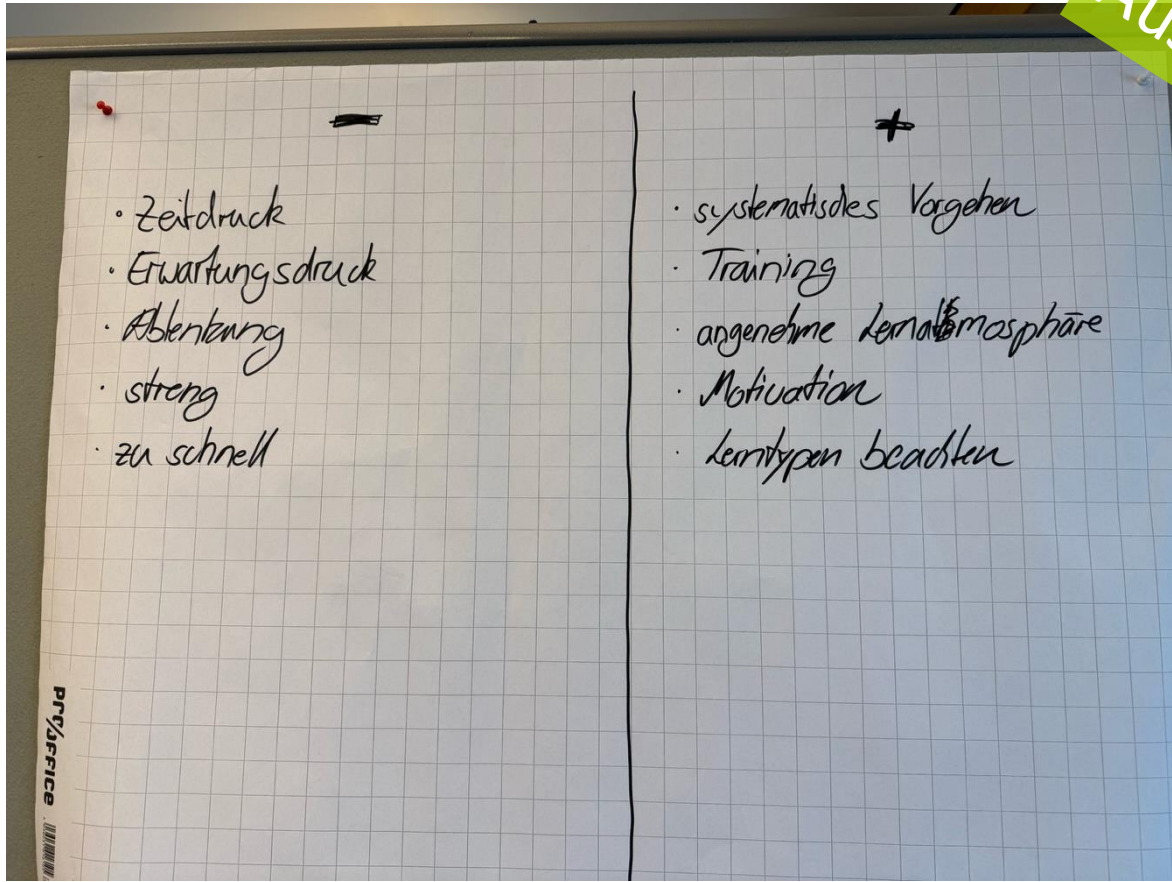 −
• Zeitdruck
• Erwartungsdruck
• Ablenkung
• streng
• zu schnell
+
• systematisches Vorgehen
• Training
• angenehme Lernatmosphäre
• Motivation
• Lerntypen beachten
pro/office